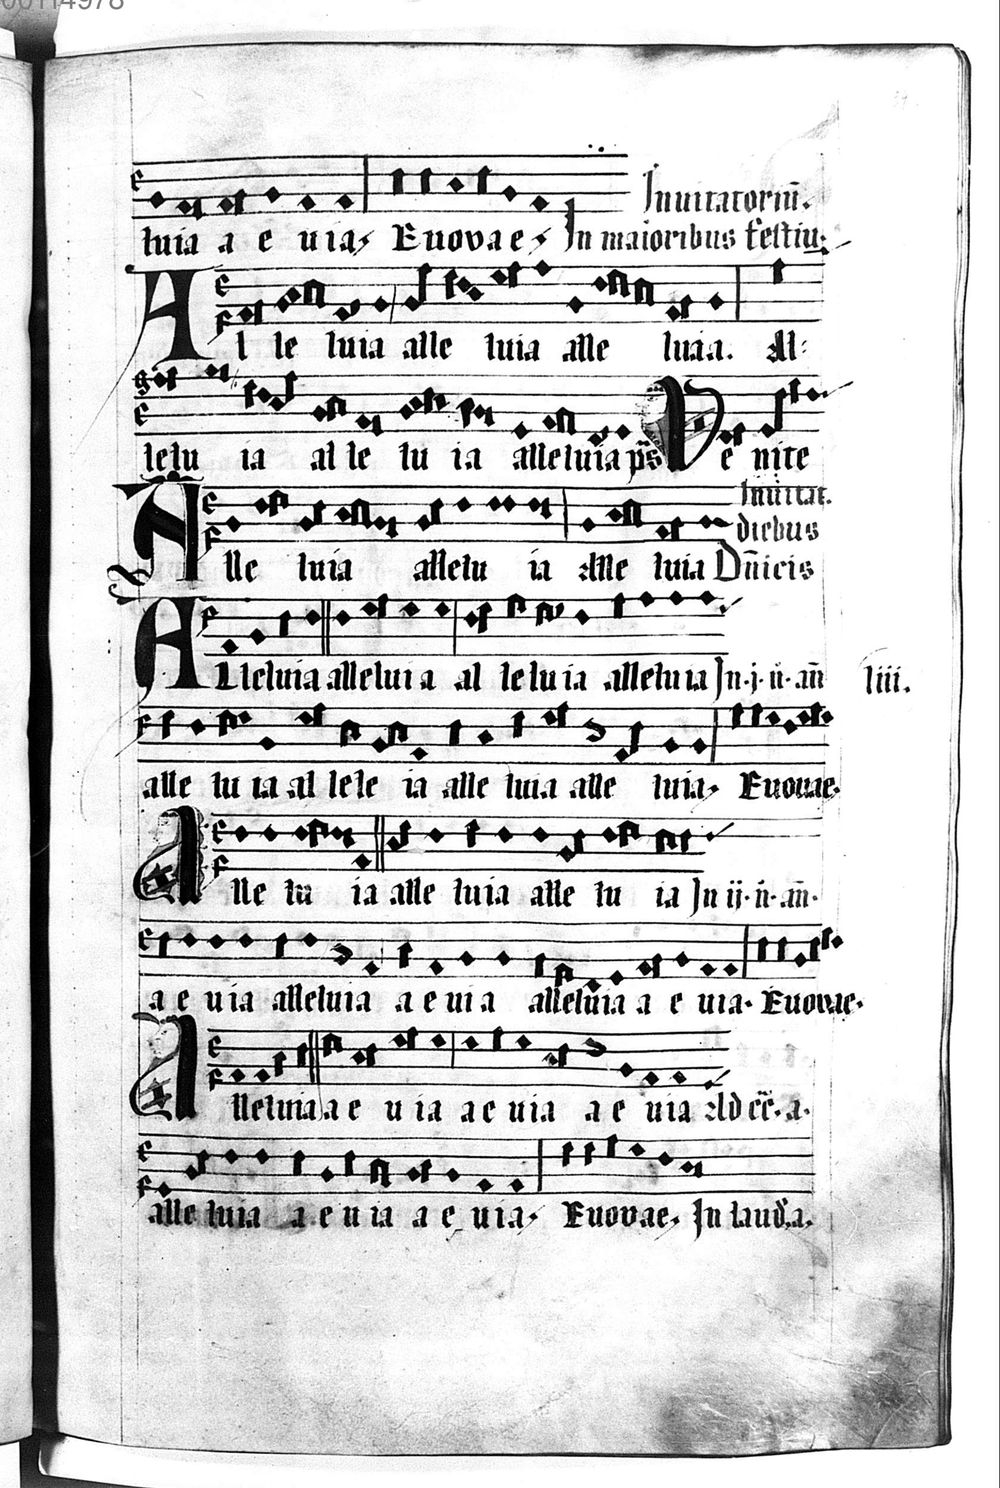 00114978
Inuitatoriū.
luia a e uia Euovae In maioribus festiu
Al le luia alle luia alle luia. Al
lelu ia al le lu ia alleluia ps Ve nite
Inuitat.
diebus
Alle luia allelu ia Alle luia Dñicis
Alleluia alleluia al leluia alleluia In .j. n. añ
iiii.
alle lu ia al lele ia alle luia alle luia Euouae
Alle lu ia alle luia alle lu ia In ij. n. añ.
a e uia alleluia a e uia alleluia a e uia. Euouae.
Alleluia a e u ia a e uia a e uia Ad a.
alle luia a e u ia a e uia Euouae. In laud. a.